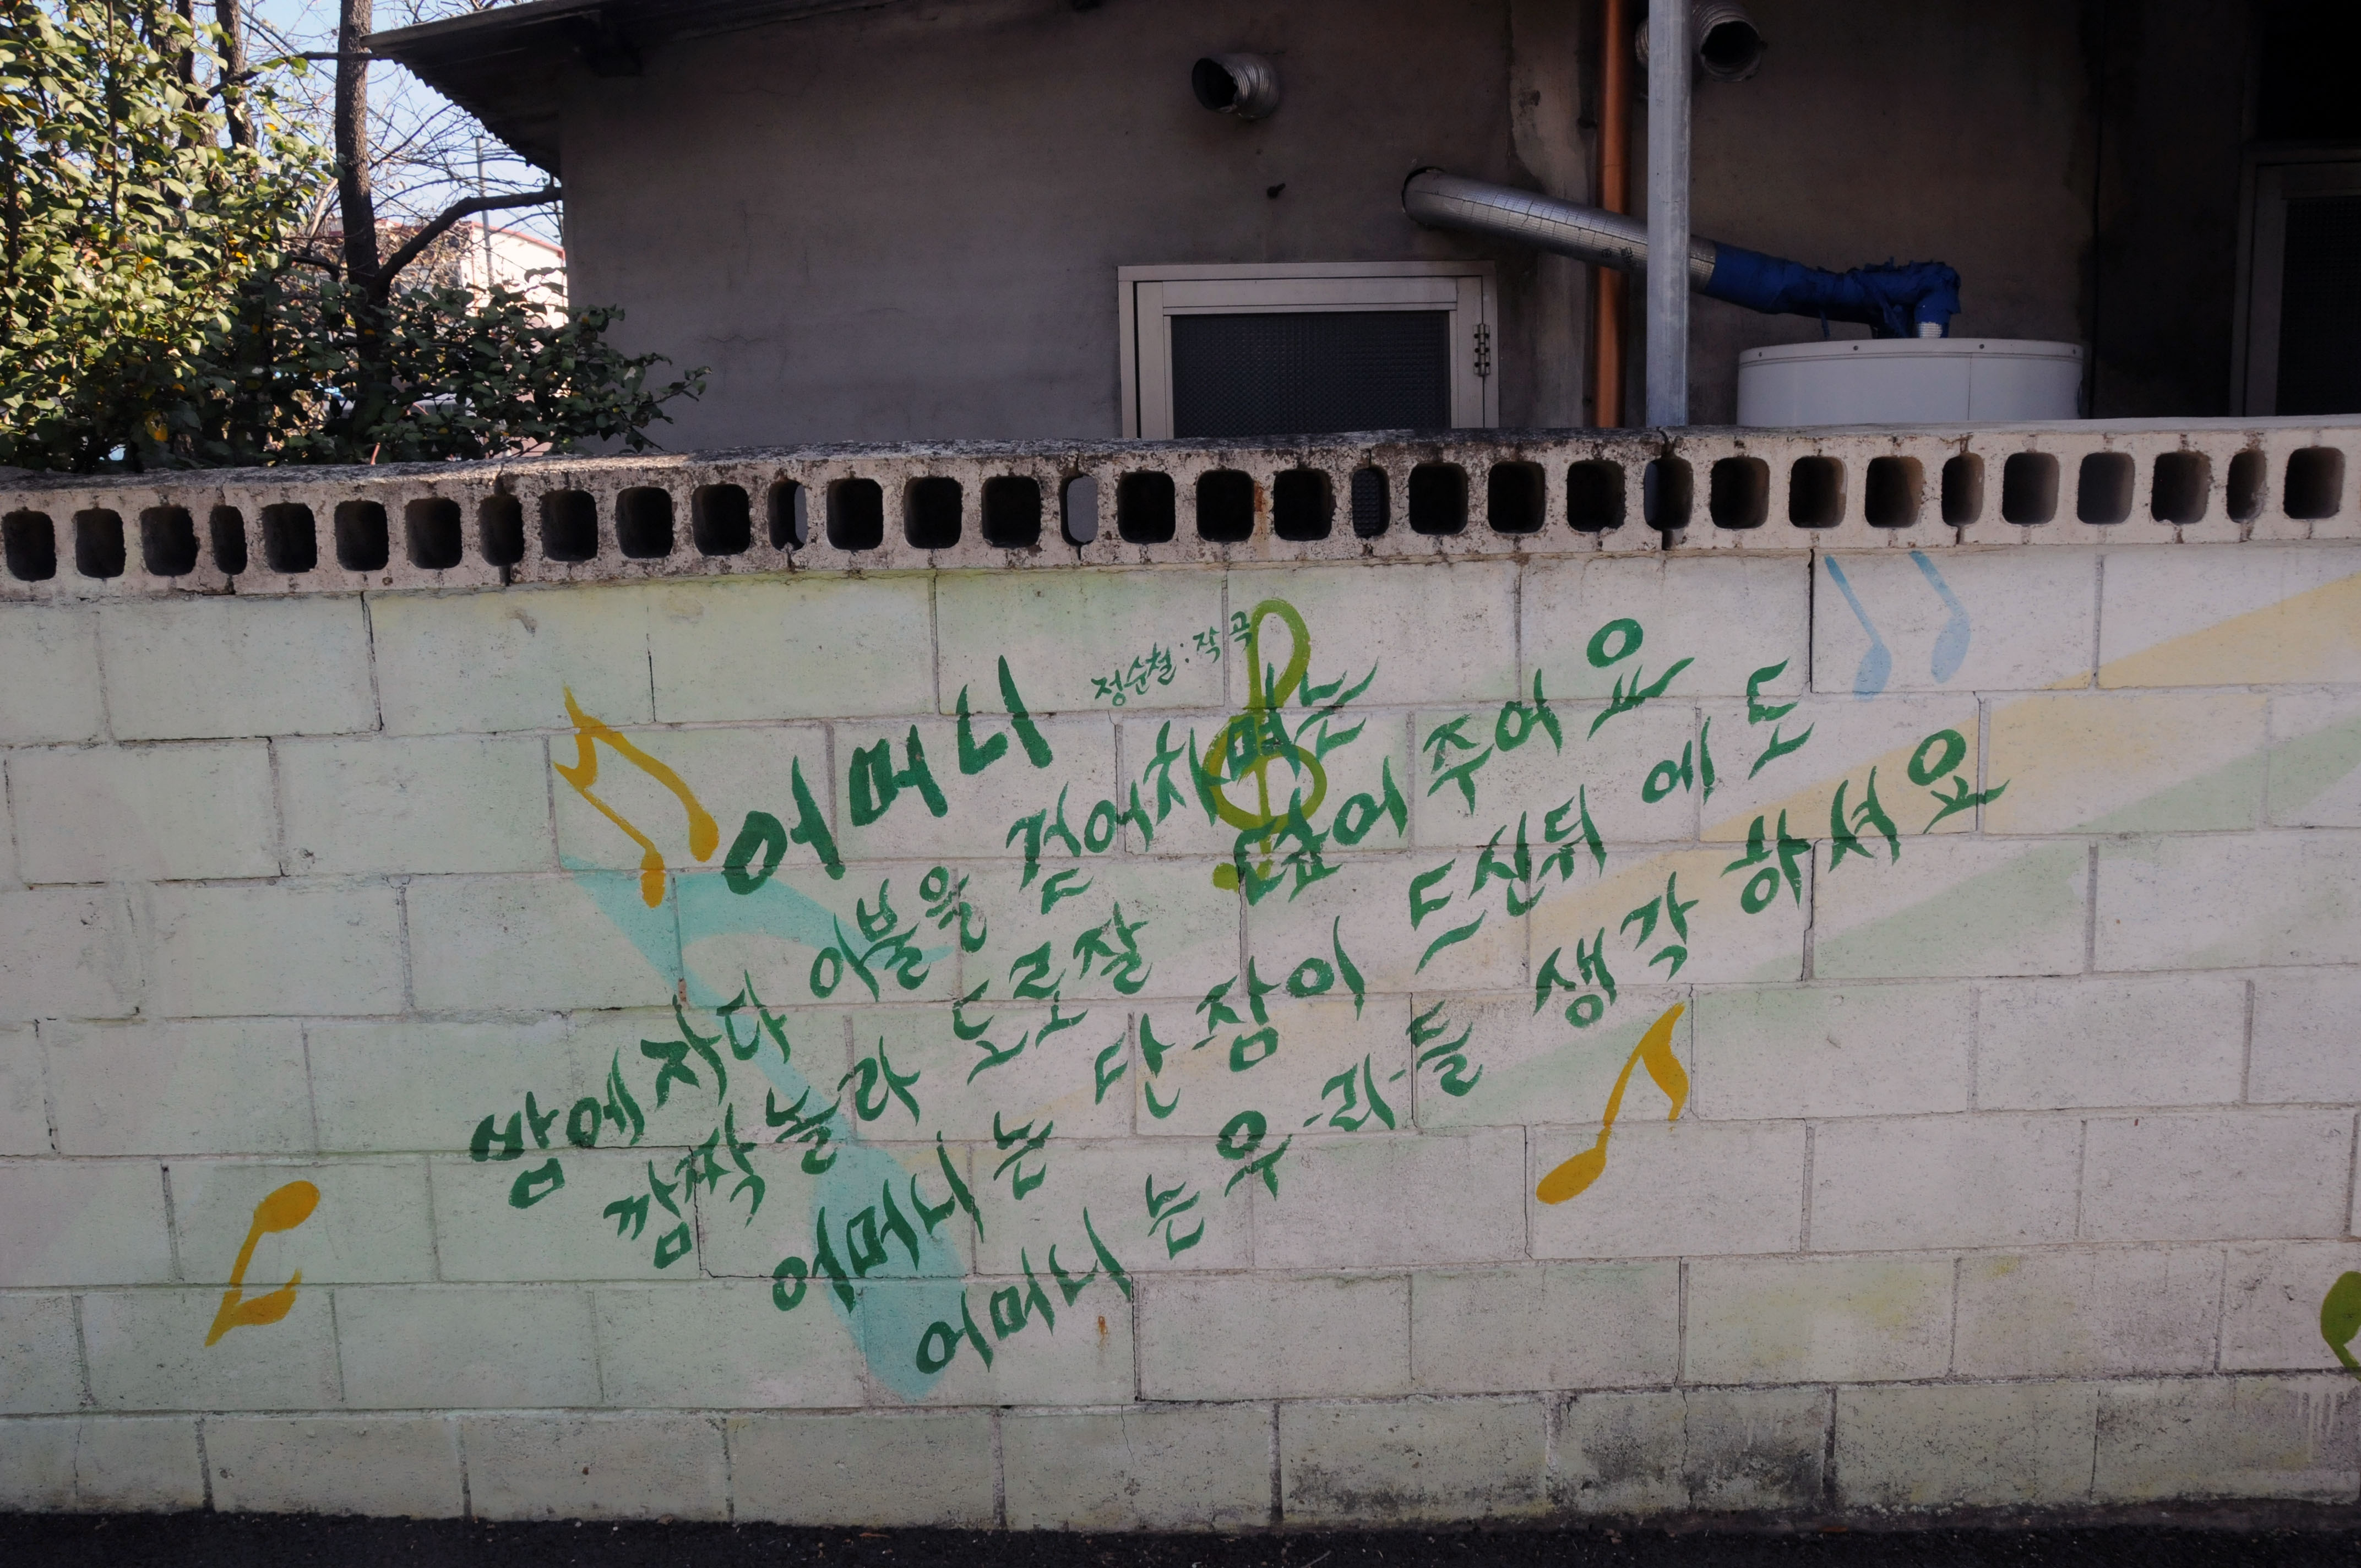 어머니
정순철 : 작곡
밤에 자다 이불을 걷어치면은
깜짝 놀라 도로 잘 덮어 주어요
어머니는 단잠이 드신 뒤에도
어머니는 우리들 생각 하셔요